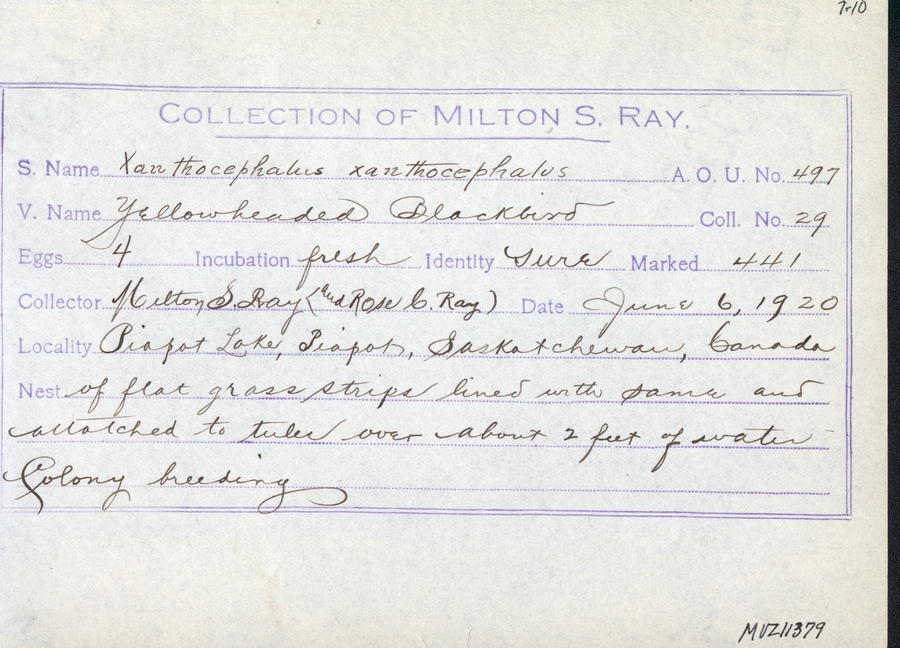 7-10
COLLECTION OF MILTON S. RAY.
S. Name Xanthocephalus xanthocephalus A. O. U. No. 497
V. Name Yellowheaded Blackbird Coll. No. 29
Eggs 4 Incubation fresh Identity sure Marked 441
Collector Milton S. Ray (and Rose C. Ray) Date June 6, 1920
Locality Piapot Lake, Piapot, Saskatchewan, Canada
Nest of flat grass strips lined with same and
attatched to tules over about 2 feet of water
Colony breeding
MVZ11379